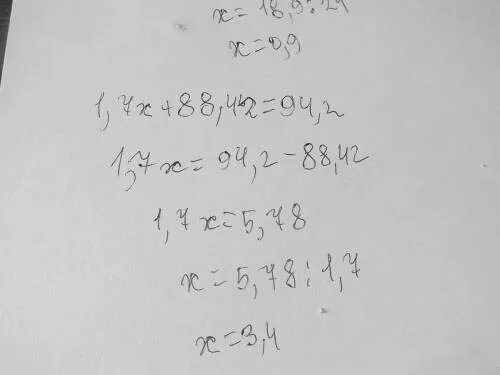 x=18,9:21
x=0,9
1,7x+88,42=94,2
1,7x=94,2-88,42
1,7x=5,78
x=5,78:1,7
x=3,4